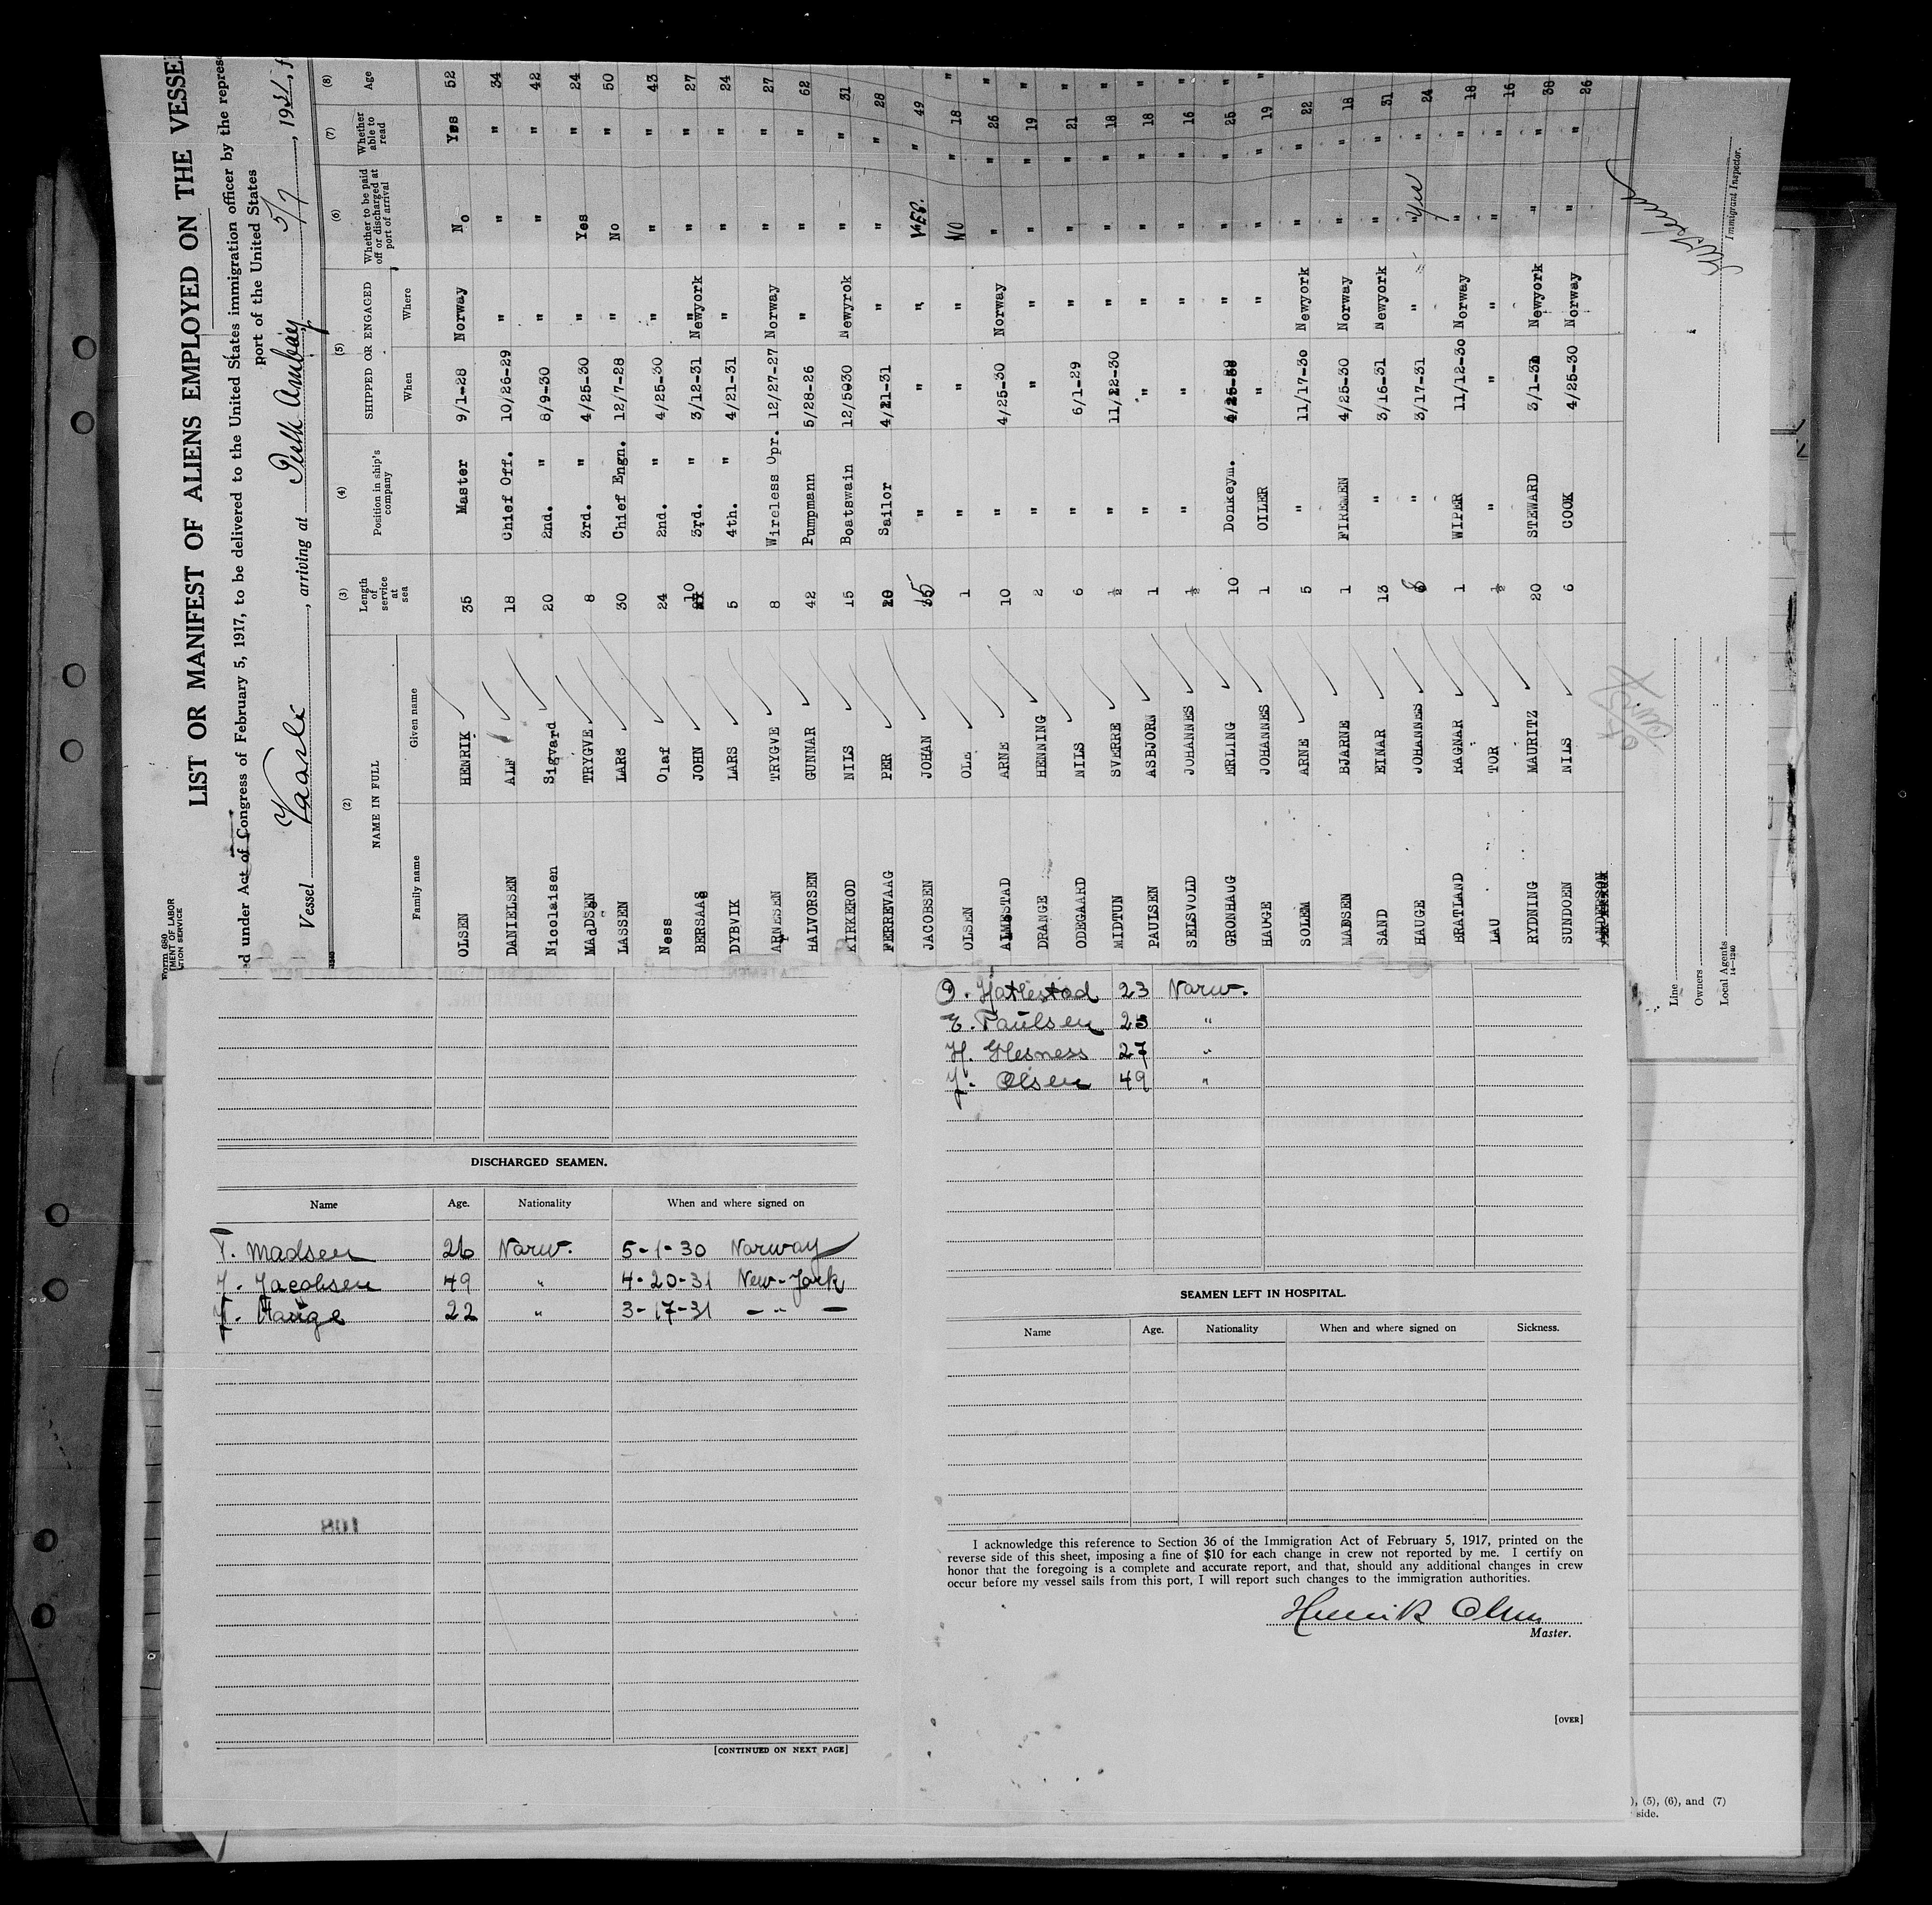 Form 680
MENT OF LABOR
TION SERVICE
LIST OR MANIFEST OF ALIENS EMPLOYED ON THE VESSE
ed under Act of Congress of February 5, 1917, to be delivered to the United States immigration officer by the repres
port of the United States
Vessel Vaarli, arriving at Perth Amboy 5/7, 1931, f
(2) (3) (4) (5) (6) (7) (8)
NAME IN FULL Length of service at sea Position in ship's company SHIPPED OR ENGAGED Whether to be paid off or discharged at port of arrival Whether able to read Age
Family name Given name When Where
OLSEN HENRIK 35 Master 9/1-28 Norway No Yes 52
DANIELSEN ALF 18 Chief Off. 10/26-29 " " " 34
Nicolaisen Sigvard 20 2nd. " 8/9-30 " " " 42
MAdDSEN TRYGVE 8 3rd. " 4/25-30 " Yes " 24
LASSEN LARS 30 Chief Engn. 12/7-28 " No " 50
Ness Olaf 24 2nd. " 4/25-30 " " " 43
BERSAAS JOHN 10 3rd. " 3/12-31 Newyork " " 27
DYBVIK LARS 5 4th. " 4/21-31 " " " 24
ARNESEN TRYGVE 8 Wireless Opr. 12/27-27 Norway " " 27
HALVORSEN GUNNAR 42 Pumpmann 5/28-26 " " " 62
KIRKEROD NILS 15 Boatswain 12/5030 Newyrok " " 31
FERREVAAG PER 20 Sailor 4/21-31 " " " 28
JACOBSEN JOHAN 15 " " " YES. " 49
OLSEN OLE 1 " " " NO " 18 "
ALMESTAD ARNE 10 " 4/25-30 Norway " " 26 "
DRANGE HENNING 2 " " " " " 19 "
ODEGAARD NILS 6 " 6/1-29 " " " 21 "
MIDTUN SVERRE ½ " 11/12-30 " " " 18 "
PAULSEN ASBJORN 1 " " " " " 18 "
SELSVOLD JOHANNES ½ " " " " " 16 "
GRONHAUG ERLING 10 Donkeym. " " " 25 "
HAUGE JOHANNES 1 OILER " " " " 19 "
SOLEM ARNE 5 " 11/17-30 Newyork " " 22
MADSEN BJARNE 1 FIREMEN 4/25-30 Norway " " 18
SAND EINAR 13 " 3/16-31 Newyork " " 31
HAUGE JOHANNES 6 " 3/17-31 " " Yes " 24
BRATLAND RAGNAR 1 WIPER 11/12-30 Norway " " 18
LAU TOR ½ " " " " " 16
RYDNING MAURITZ 20 STEWARD 3/1-31 Newyork " " 38
SUNDOEN NILS 6 COOK 4/25-30 Norway " " 26
ANDERSON
Line
Owners
Local Agents
14—1240
Immigrant Inspector.
DISCHARGED SEAMEN.
Name Age. Nationality When and where signed on
T. Madsen 26 Norw. 5-1-30 Norway
J. Jacobsen 49 " 4-20-31 New-York
J. Hauge 22 " 3-17-31 — " —
[CONTINUED ON NEXT PAGE]
O. Hatlestad 23 Norw.
E. Paulsen 25 "
H. Glesness 27 "
J. Olsen 49 "
SEAMEN LEFT IN HOSPITAL.
Name Age. Nationality When and where signed on Sickness.
I acknowledge this reference to Section 36 of the Immigration Act of February 5, 1917, printed on the
reverse side of this sheet, imposing a fine of $10 for each change in crew not reported by me. I certify on
honor that the foregoing is a complete and accurate report, and that, should any additional changes in crew
occur before my vessel sails from this port, I will report such changes to the immigration authorities.
Henrik Olsen
Master.
[OVER]
), (5), (6), and (7)
side.